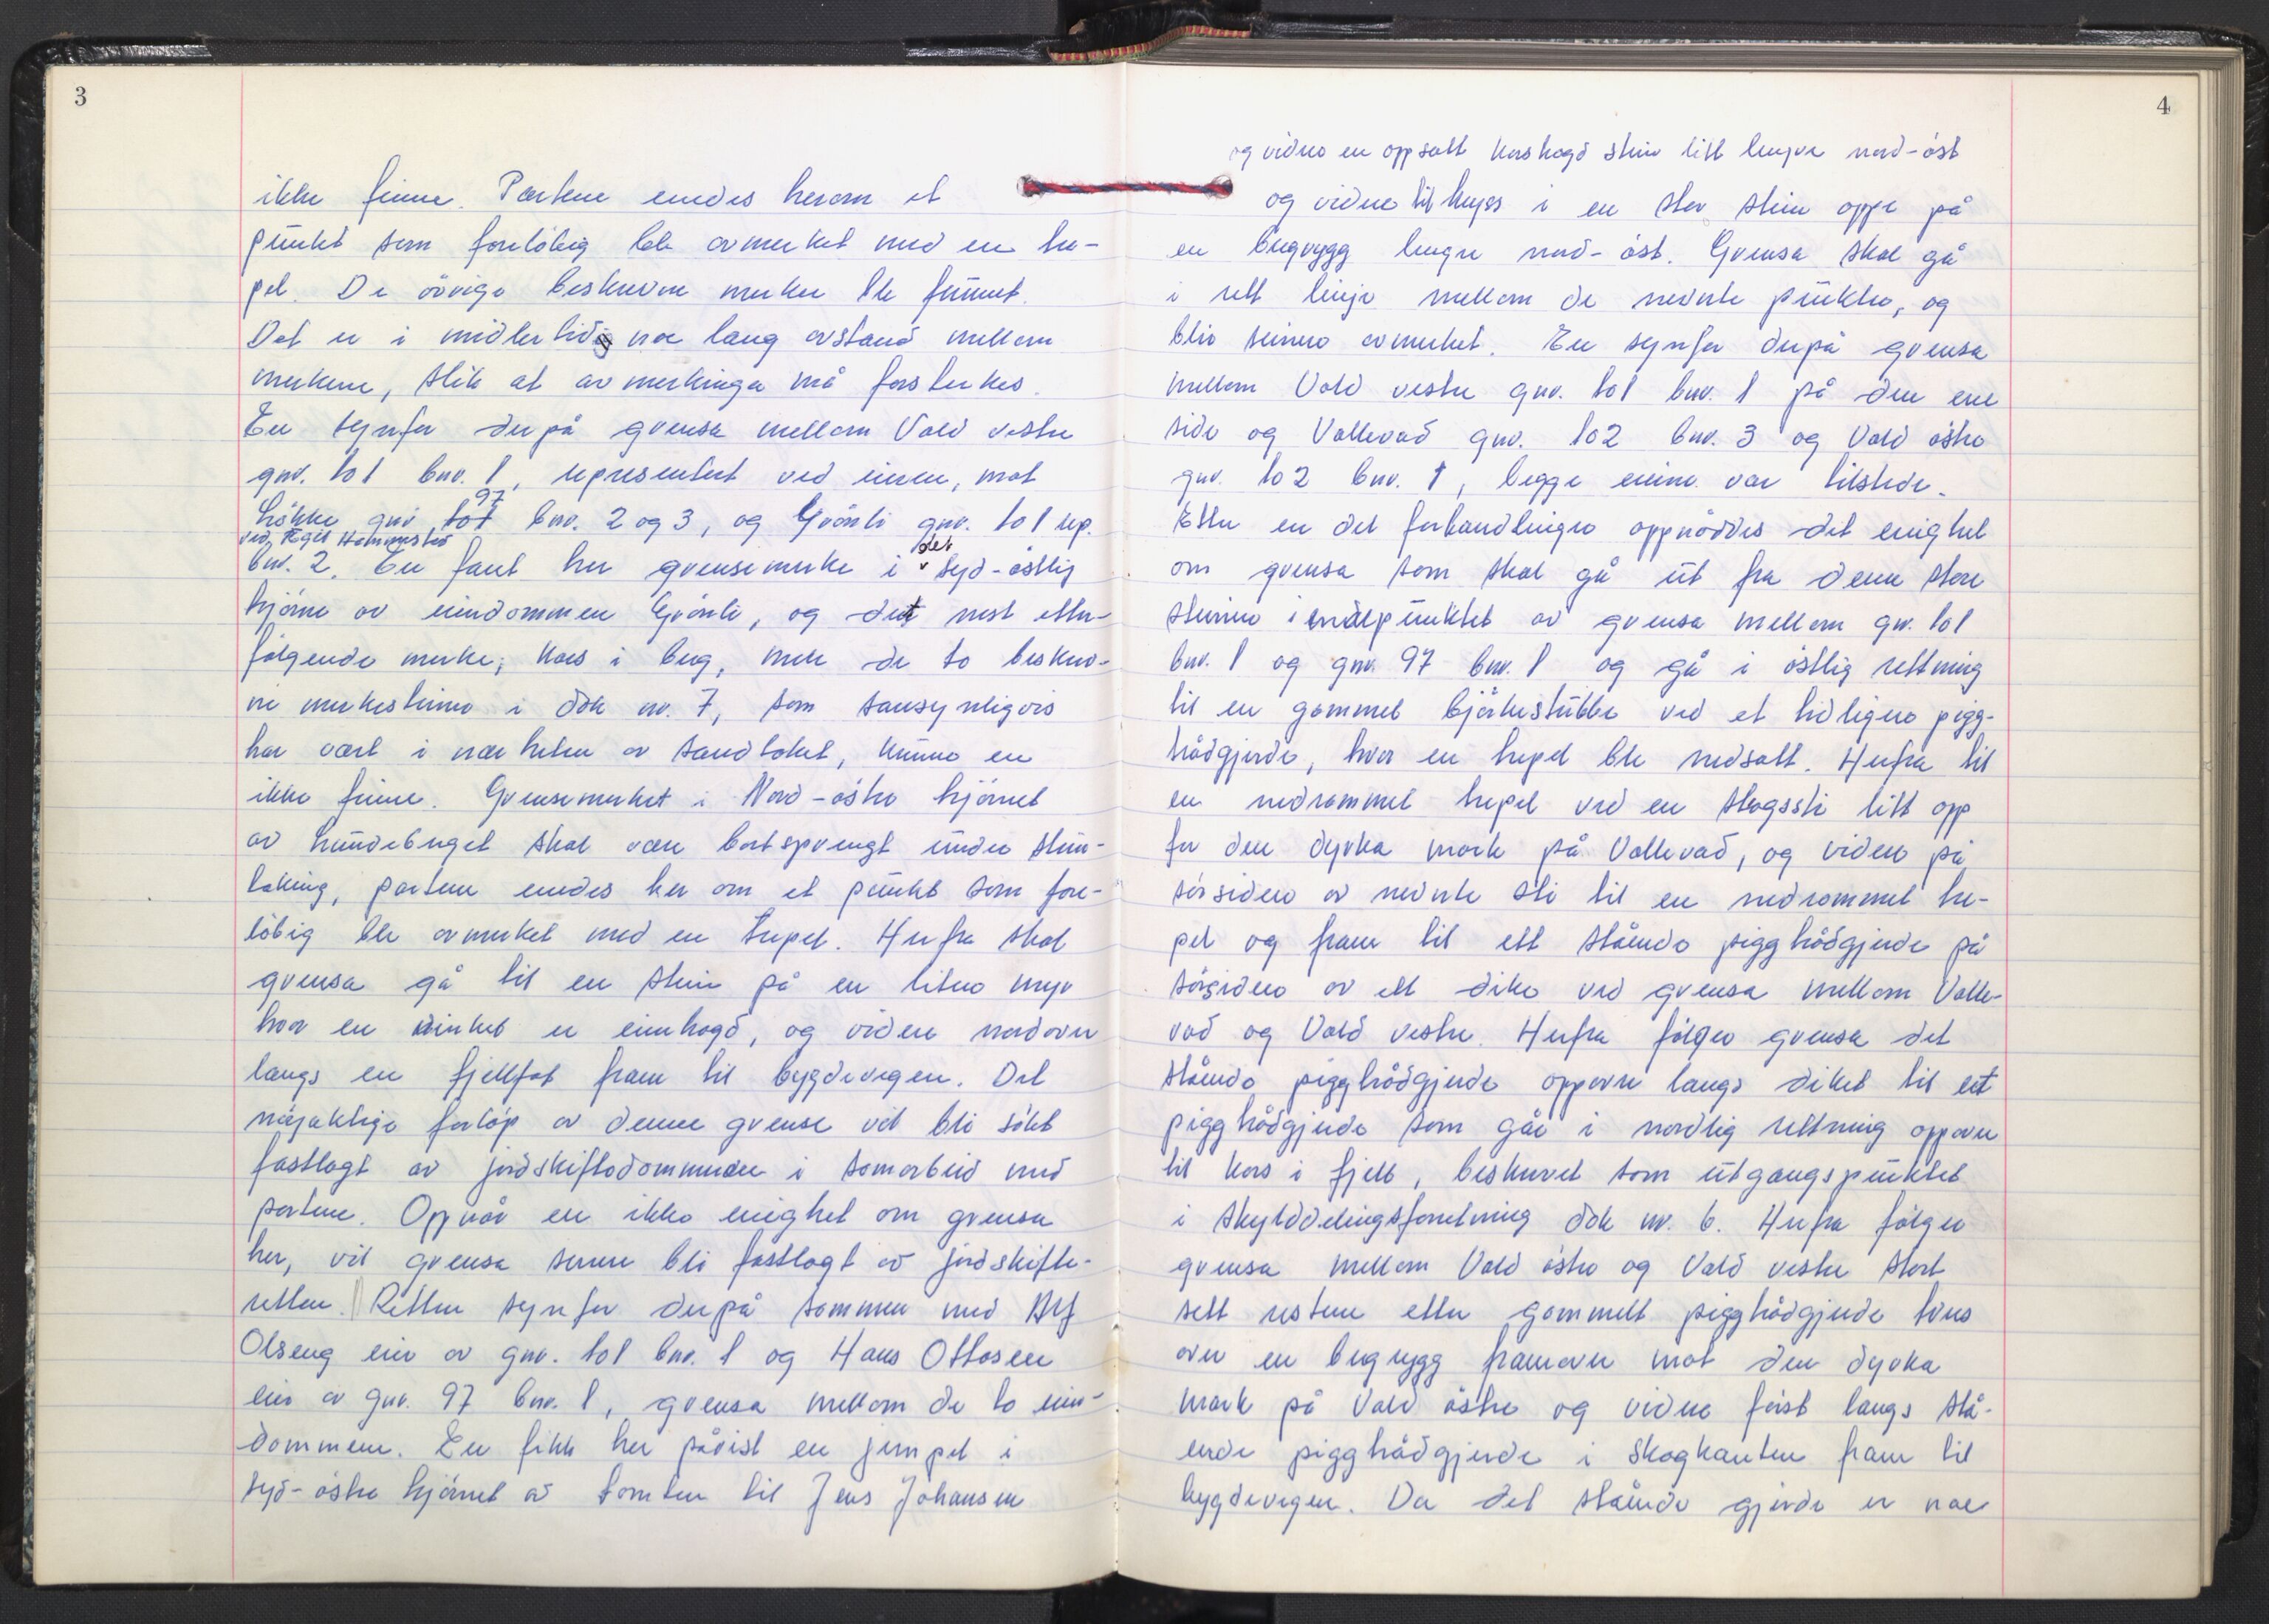 3
ikke finne. Partene enedes herom et
punkt som foreløbig ble avmerket med en tre-
pel. De øvrige beskrevne merker ble funnet.
Det er i midlertidig noe lang avstand mellom
merkene, slik at avmerkinga må forsterkes.
En synfor derpå grensa mellom Vold vestre
gnr. 101 bnr. 1, representert ved eieren, mot
97
Løkke gnr. 101 bnr. 2 og 3, og Grönli gnr. 101 rep.
ved Egil Hammestad det
bnr. 2. En fant her grensemerke i syd-östlig
hjörne av eiendommen Grönli, og det nest etter-
fölgende merke; kors i berg, men de to beskrev-
ne merkesteiner i dok nr. 7, som sansynligvis
har vært i nærheten av sandtaket, kunne en
ikke finne. Grensemerket i Nord-östre hjörnet
av hundeberget skal være bortsprengt under stein-
taking, partene enedes her om et punkt som fore-
löbig ble avmerket med en trepel. Herfra skal
grensa gå til en stein på en liten myr
hvor en vinkel er innhogd, og videre nordover
langs en fjellfot fram til bygdevegen. Det
nöjaktige forlöp av denne grense vil bli sökt
fastlagt av jordskiftedommeren i samarbeid med
partene. Oppnår en ikke enighet om grensa
her, vil grensa senere bli fastlagt av jordskifte-
retten. Retten synfor derpå sammen med Alf
Olseng eier av gnr. 101 bnr. 1 og Hans Ottosen
eier av gnr. 97 bnr. 1, grensa mellom de to eien-
dommene. En fikk her påvist en jernpel i
syd-östre hjörnet av tomten til Jens Johansen
4
og videre en oppsatt korshogd stein litt lengre nord-öst
og videre til kryss i en stor stein oppe på
en bergrygg lengre nord-öst. Grensa skal gå
i rett linje mellom de nevnte punkter, og
blir seinere avmerket. En synfor derpå grensa
mellom Vold vestre gnr. 101 bnr. 1 på den ene
side og Vollevad gnr. 102 bnr. 3 og Vold östre
gnr. 102 bnr. 1, begge eiere var tilstede.
Etter en del forhandlinger oppnåddes det enighet
om grensa som skal gå ut fra denne store
steinen i endepunktet av grensa mellom gnr. 101
bnr. 1 og gnr. 97 bnr. 1 og gå i östlig rettning
til en gammel bjørkestubbe ved et tidligere pigg-
trådgjerde, hvor en trepel ble nedsatt. Herfra til
en nedrammet trepel ved en skogssti litt opp
for den dyrka mark på Vollevad, og videre på
sörsiden av nevnte sti til en nedrammet tre-
pel og fram til ett stående piggtrådgjerde på
sörsiden av ett dike ved grensa mellom Volle-
vad og Vold vestre. Herfra fölger grensa det
stående piggtrådgjerde oppover langs diket til ett
piggtrådgjerde som går i nordlig rettning oppover
til kors i fjell, beskrevet som utgangspunktet
i skylddelingsforretning dok nr. 6. Herfra fölger
grensa mellom Vold östre og Vold vestre stort
sett restene etter gammelt piggtrådgjerde tvers
over en bergrygg framover mot den dyrka
mark på Vold östre og videre först langs stå-
ende piggtrådgjerde i skogkanten fram til
bygdevegen. Da det stående gjerde er noe